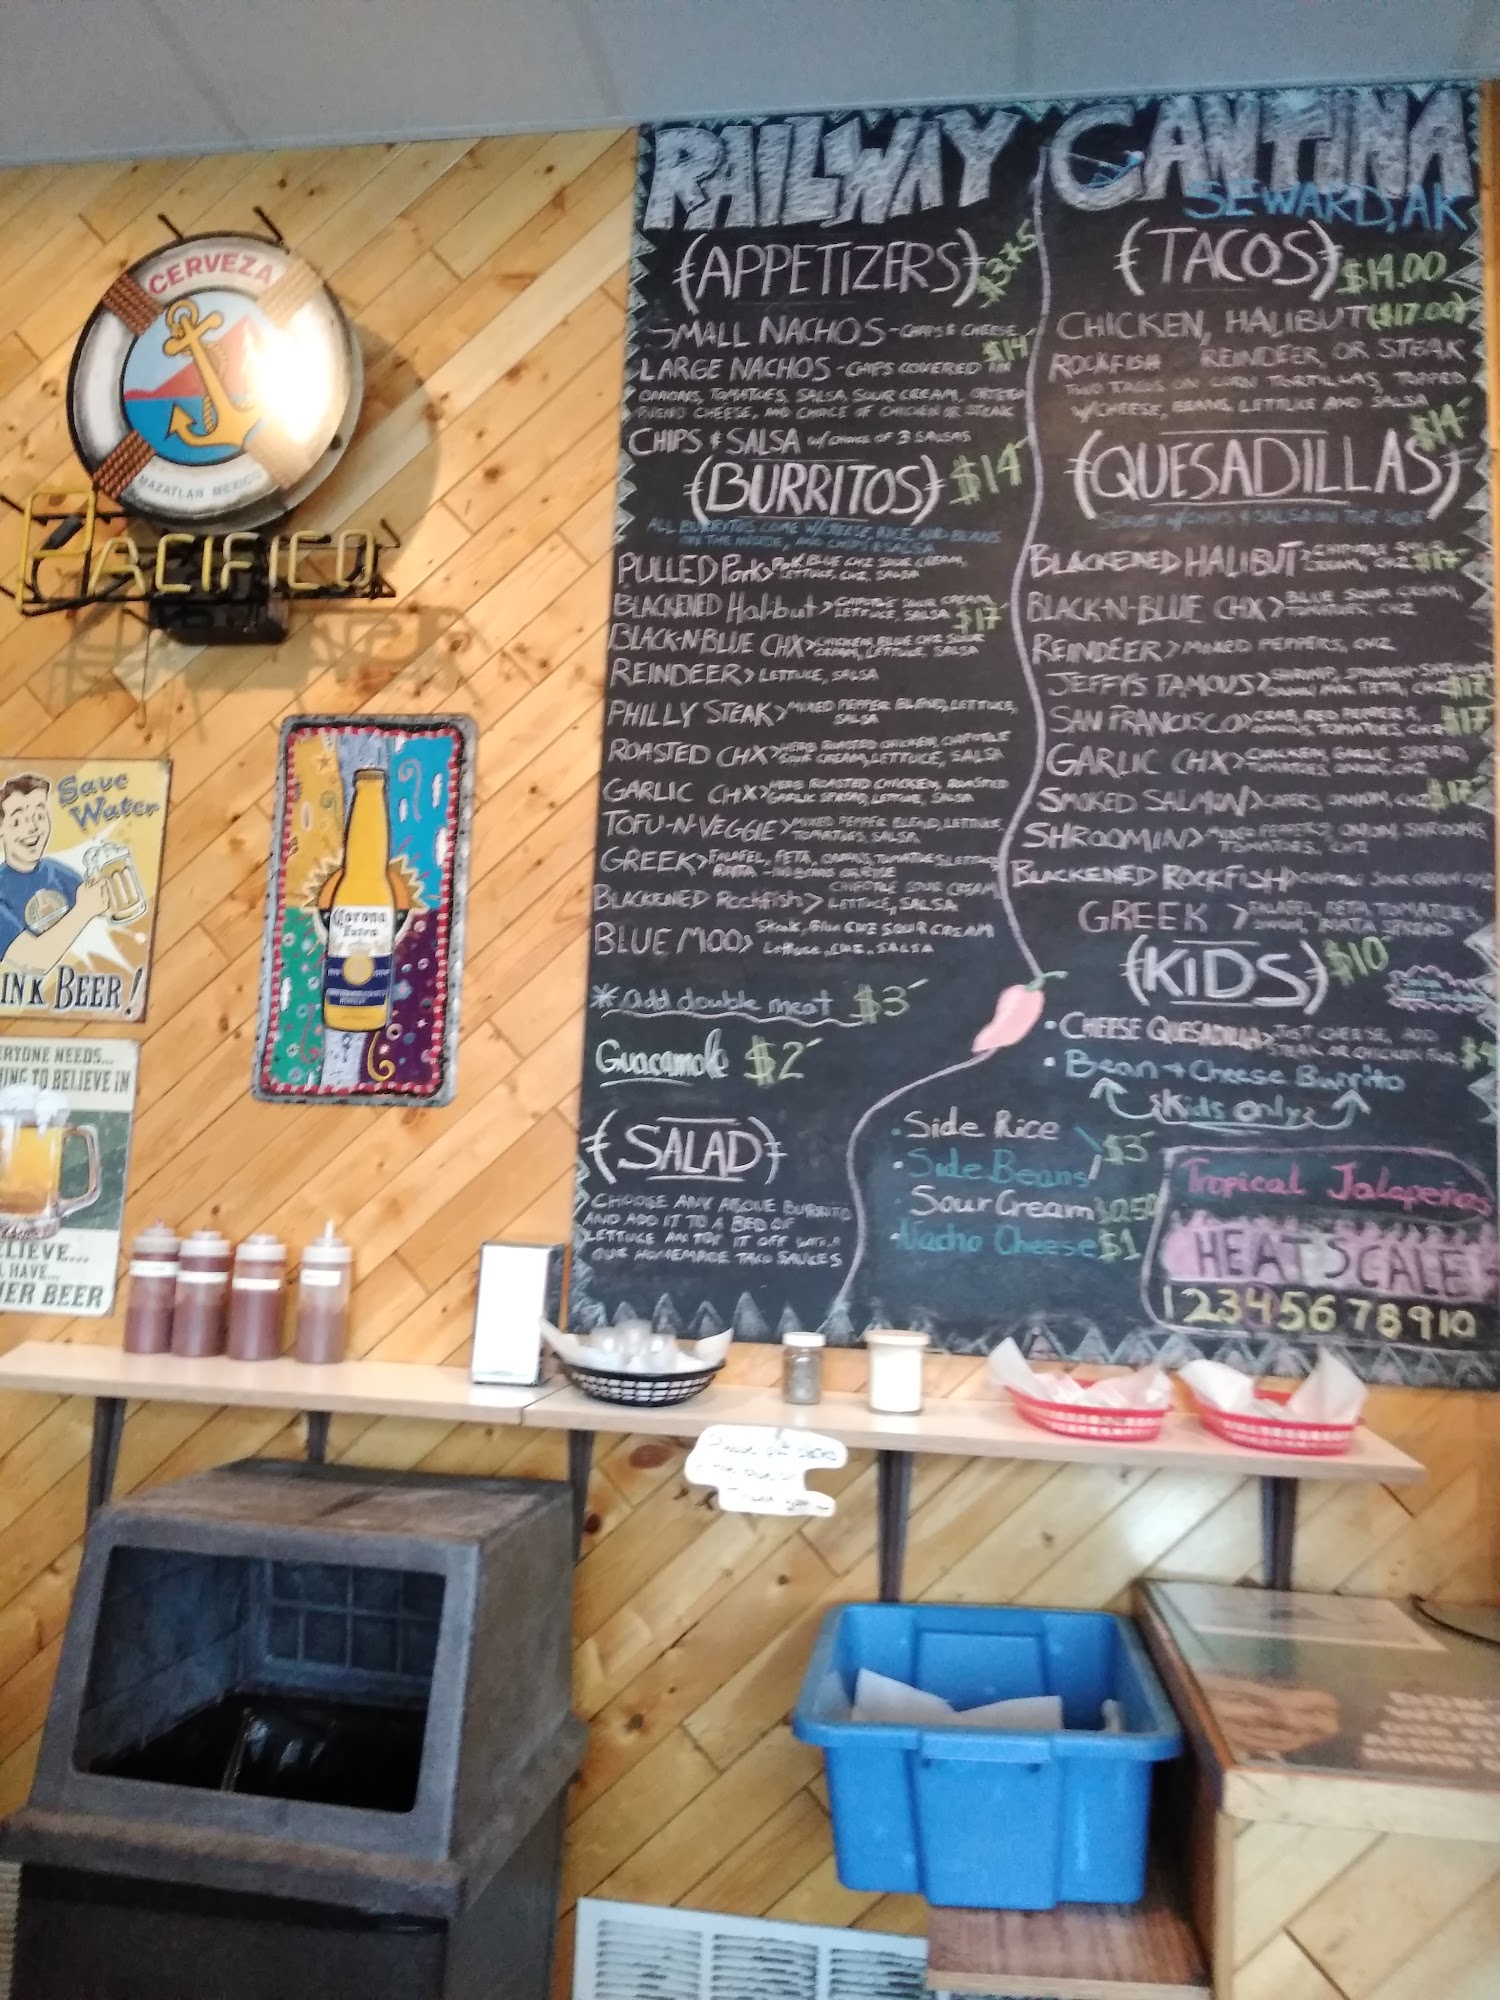 RAILWAY CANTINA
SEWARD, AK
(APPETIZERS) $3.75
SMALL NACHOS - CHIPS & CHEESE
LARGE NACHOS - CHIPS COVERED IN $14
ONIONS, TOMATOES, SALSA, SOUR CREAM,
CHEESE, AND CHOICE OF CHICKEN OR STEAK
CHIPS & SALSA W/ CHOICE OF 3 SALSAS
(BURRITOS) $14
ALL BURRITOS COME W/ CHEESE, RICE AND BEANS
ON THE INSIDE, AND CHIPS & SALSA
PULLED Pork > Pork, BLUE CHZ SOUR CREAM,
LETTUCE, CHZ, SALSA
BLACKENED Halibut > CHIPOTLE SOUR CREAM,
LETTUCE, SALSA $17
BLACK-N-BLUE CHX > CHICKEN, BLUE CHZ SOUR
CREAM, LETTUCE, SALSA
REINDEER > LETTUCE, SALSA
PHILLY STEAK > MIXED PEPPER BLEND, LETTUCE,
SALSA
ROASTED CHX > HERB ROASTED CHICKEN, CHIPOTLE
SOUR CREAM, LETTUCE, SALSA
GARLIC CHX > HERB ROASTED CHICKEN, ROASTED
GARLIC SPREAD, LETTUCE, SALSA
TOFU-N-VEGGIE > MIXED PEPPER BLEND, LETTUCE,
TOMATOES, SALSA
GREEK > FALAFEL, FETA, ONIONS, TOMATOES, LETTUCE
BLACKENED Rockfish > CHIPOTLE SOUR CREAM,
LETTUCE, SALSA
BLUE MOO > Steak, Blue CHZ SOUR CREAM
Lettuce, CHZ, SALSA
* add double meat $3
Guacamole $2
(SALAD)
CHOOSE ANY ABOVE BURRITO
AND ADD IT TO A BED OF
LETTUCE AN TOP IT OFF WITH
OUR HOMEMADE TACO SAUCES
(TACOS) $14.00
CHICKEN, HALIBUT ($17.00)
ROCKFISH REINDEER OR STEAK
TWO TACOS ON CORN TORTILLAS, TOPPED
W/ CHEESE, BEANS, LETTUCE AND SALSA
(QUESADILLAS) $14
SERVED W/ CHIPS & SALSA ON THE SIDE
BLACKENED HALIBUT > CHIPOTLE SOUR
CREAM, CHZ $17
BLACK-N-BLUE CHX > BLUE SOUR CREAM,
TOMATOES, CHZ
REINDEER > MIXED PEPPERS, CHZ
JEFFY'S FAMOUS > SHRIMP, $17
SAN FRANCISCO > CRAB, RED PEPPERS,
TOMATOES, CHZ $17
GARLIC CHX > CHICKEN, GARLIC SPREAD,
TOMATOES, ONION, CHZ
SMOKED SALMON > CAPERS, ONION, CHZ $17
SHROOMIN > MIXED PEPPERS, ONION, SHROOMS,
TOMATOES, CHZ
BLACKENED ROCKFISH > CHIPOTLE SOUR CREAM CHZ
GREEK > FALAFEL, FETA, TOMATOES,
SPREAD
(KIDS) $10
• CHEESE QUESADILLA > JUST CHEESE, ADD
STEAK OR CHICKEN FOR
• Bean + Cheese Burrito
Kids only
• Side Rice
• Side Beans $3
• Sour Cream $0.50
• Nacho Cheese $1
Tropical Jalapeños
HEAT SCALE
1 2 3 4 5 6 7 8 9 10
CERVEZA
MAZATLAN MEXICO
PACIFICO
Save
Water
INK BEER!
Corona
Extra
ERYONE NEEDS...
HING TO BELIEVE IN
ELIEVE...
HAVE...
HER BEER